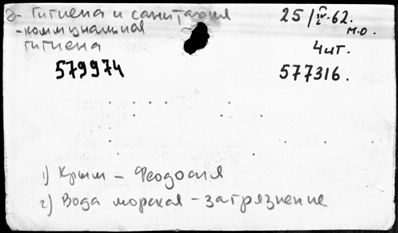 Гигиена и санитария 25/IV-62.
-коммунальная м.о.
гигиена 4шт.
579974 577316.
1) Крым - Феодосия
2) Вода морская - загрязнение